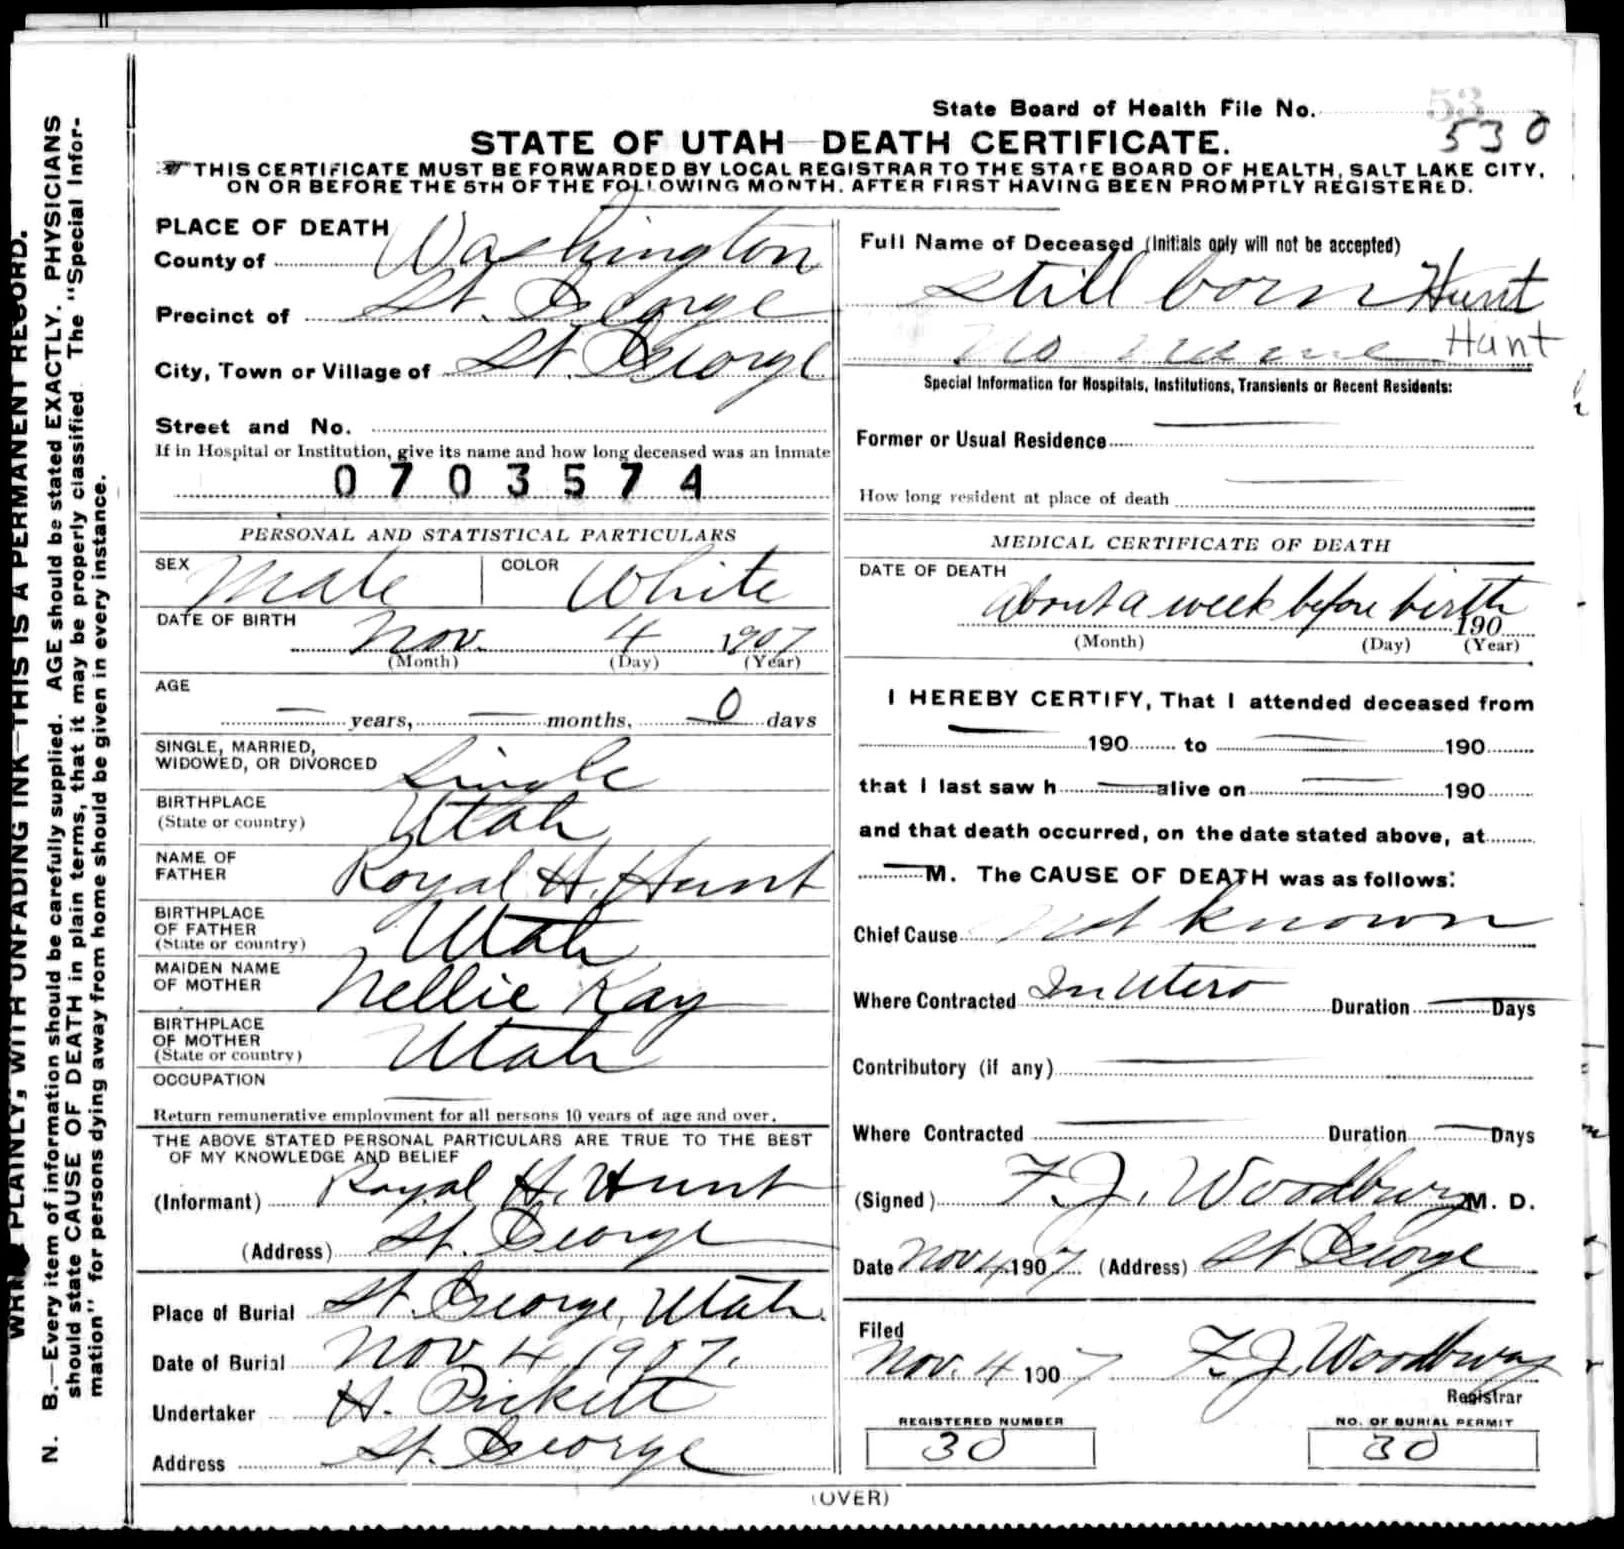 WRITE PLAINLY, WITH UNFADING INK—THIS IS A PERMANENT RECORD.
N. B.—Every item of information should be carefully supplied. AGE should be stated EXACTLY. PHYSICIANS
should state CAUSE OF DEATH in plain terms, that it may be properly classified. The "Special Infor-
mation" for persons dying away from home should be given in every instance.
State Board of Health File No. 53
530
STATE OF UTAH—DEATH CERTIFICATE.
THIS CERTIFICATE MUST BE FORWARDED BY LOCAL REGISTRAR TO THE STATE BOARD OF HEALTH, SALT LAKE CITY,
ON OR BEFORE THE 5TH OF THE FOLLOWING MONTH, AFTER FIRST HAVING BEEN PROMPTLY REGISTERED.
PLACE OF DEATH
County of Washington
Precinct of St. George
City, Town or Village of St. George
Street and No.
If in Hospital or Institution, give its name and how long deceased was an inmate
0703574
PERSONAL AND STATISTICAL PARTICULARS
SEX Male COLOR White
DATE OF BIRTH Nov. 4 1907
(Month) (Day) (Year)
AGE
— years, — months, 0 days
SINGLE, MARRIED,
WIDOWED, OR DIVORCED Single
BIRTHPLACE
(State or country) Utah
NAME OF
FATHER Royal H. Hunt
BIRTHPLACE
OF FATHER
(State or country) Utah
MAIDEN NAME
OF MOTHER Nellie Kay
BIRTHPLACE
OF MOTHER
(State or country) Utah
OCCUPATION —
Return remunerative employment for all persons 10 years of age and over.
THE ABOVE STATED PERSONAL PARTICULARS ARE TRUE TO THE BEST
OF MY KNOWLEDGE AND BELIEF
(Informant) Royal H. Hunt
(Address) St. George
Place of Burial St. George, Utah.
Date of Burial Nov. 4, 1907.
Undertaker H. Pickett
Address St. George
Full Name of Deceased (Initials only will not be accepted)
Still born Hunt
No name Hunt
Special Information for Hospitals, Institutions, Transients or Recent Residents:
Former or Usual Residence —
How long resident at place of death —
MEDICAL CERTIFICATE OF DEATH
DATE OF DEATH
About a week before birth
190
(Month) (Day) (Year)
I HEREBY CERTIFY, That I attended deceased from
— 190 to — 190
that I last saw h — alive on — 190
and that death occurred, on the date stated above, at
— M. The CAUSE OF DEATH was as follows:
Chief Cause Not known
Where Contracted In Utero Duration — Days
Contributory (if any) —
Where Contracted — Duration — Days
(Signed) F. J. Woodbury M. D.
Date Nov 4, 1907 (Address) St George
Filed
Nov. 4 1907 F. J. Woodbury
Registrar
REGISTERED NUMBER
30
NO. OF BURIAL PERMIT
30
(OVER)